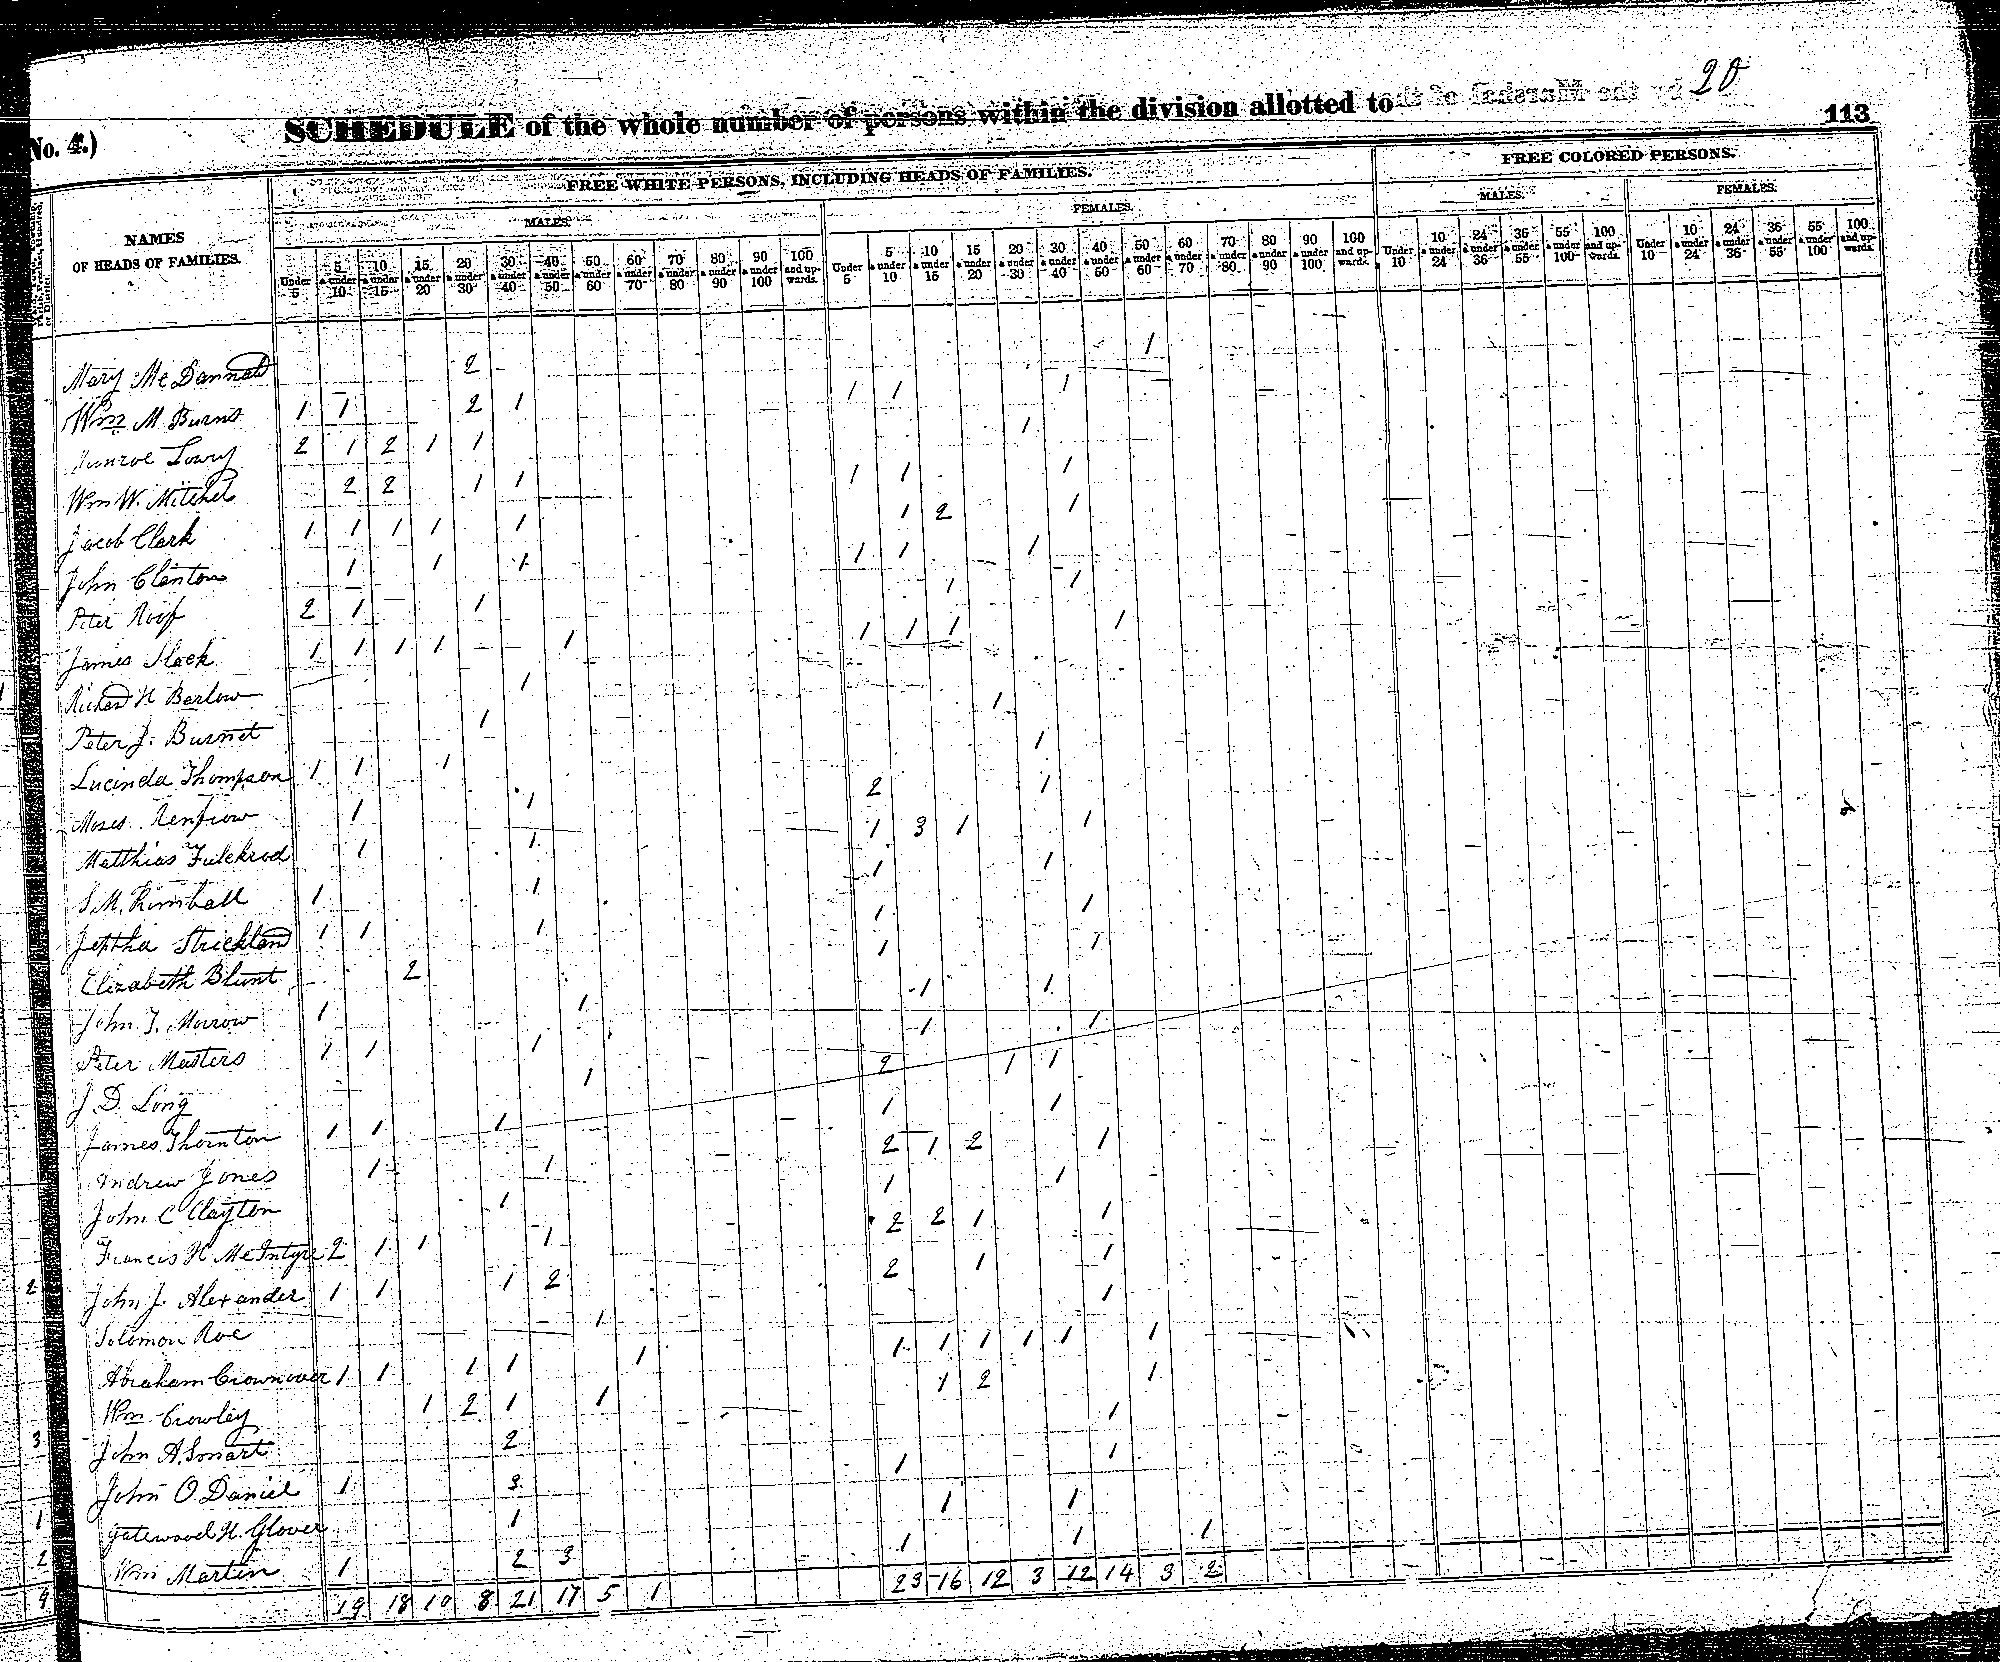 20
No. 4.) SCHEDULE of the whole number of persons within the division allotted to by the Marshal of th 113
FREE WHITE PERSONS, INCLUDING HEADS OF FAMILIES. FREE COLORED PERSONS.
NAMES OF HEADS OF FAMILIES. MALES. FEMALES. MALES. FEMALES.
Under 5 5 & under 10 10 & under 15 15 & under 20 20 & under 30 30 & under 40 40 & under 50 50 & under 60 60 & under 70 70 & under 80 80 & under 90 90 & under 100 100 and upwards. Under 5 5 & under 10 10 & under 15 15 & under 20 20 & under 30 30 & under 40 40 & under 50 50 & under 60 60 & under 70 70 & under 80 80 & under 90 90 & under 100 100 and upwards. Under 10 10 & under 24 24 & under 36 36 & under 55 55 & under 100 100 and upwards. Under 10 10 & under 24 24 & under 36 36 & under 55 55 & under 100 100 and upwards.
Mary McDannald 2 1
Wm M Burns 1 1 2 1 1 1 1
Munroe Lowry 2 1 2 1 1 1
Wm W. Mitchel 2 2 1 1 1 1 1
Jacob Clark 1 1 1 1 1 1 2 1
John Clanton 1 1 1 1 1 1
Peter Roof 2 1 1 1 1
James Slack 1 1 1 1 1 1 1 1 1
Richard H Barlow 1
Peter J. Burnet 1 1
Lucinda Thompson 1 1 1 1
Moses Renfrow 1 1 2 1
Matthias Fulckrod 1 1 1 3 1 1
S. M. Kimball 1 1 1 1
Jeptha Strickland 1 1 1 1 1
Elizabeth Blunt 2 1 1
John T. Morrow 1 1 1 1
Peter Masters 1 1 1 1 1
J. D. Long 1 2 1 1
James Thornton 1 1 1 1 1
Andrew Jones 1 1 2 1 2 1
John C Clayton 1 1 1
Francis H McIntyre 2 1 1 1 2 2 1 1
2 John J. Alexander 1 1 1 2 2 1 1
Solomon Roe 1 1
Abraham Crownover 1 1 1 1 1 1 1 1 1 1 1
Wm Crowley 1 2 1 1 1 2 1
3 John A. Smart 2 1
John O. Daniel 1 3 1 1
1 Gatewood H. Glover 1 1 1
2 Wm Martin 1 2 3 1 1 1
9 19 18 10 8 21 17 5 1 23 16 12 3 12 14 3 2